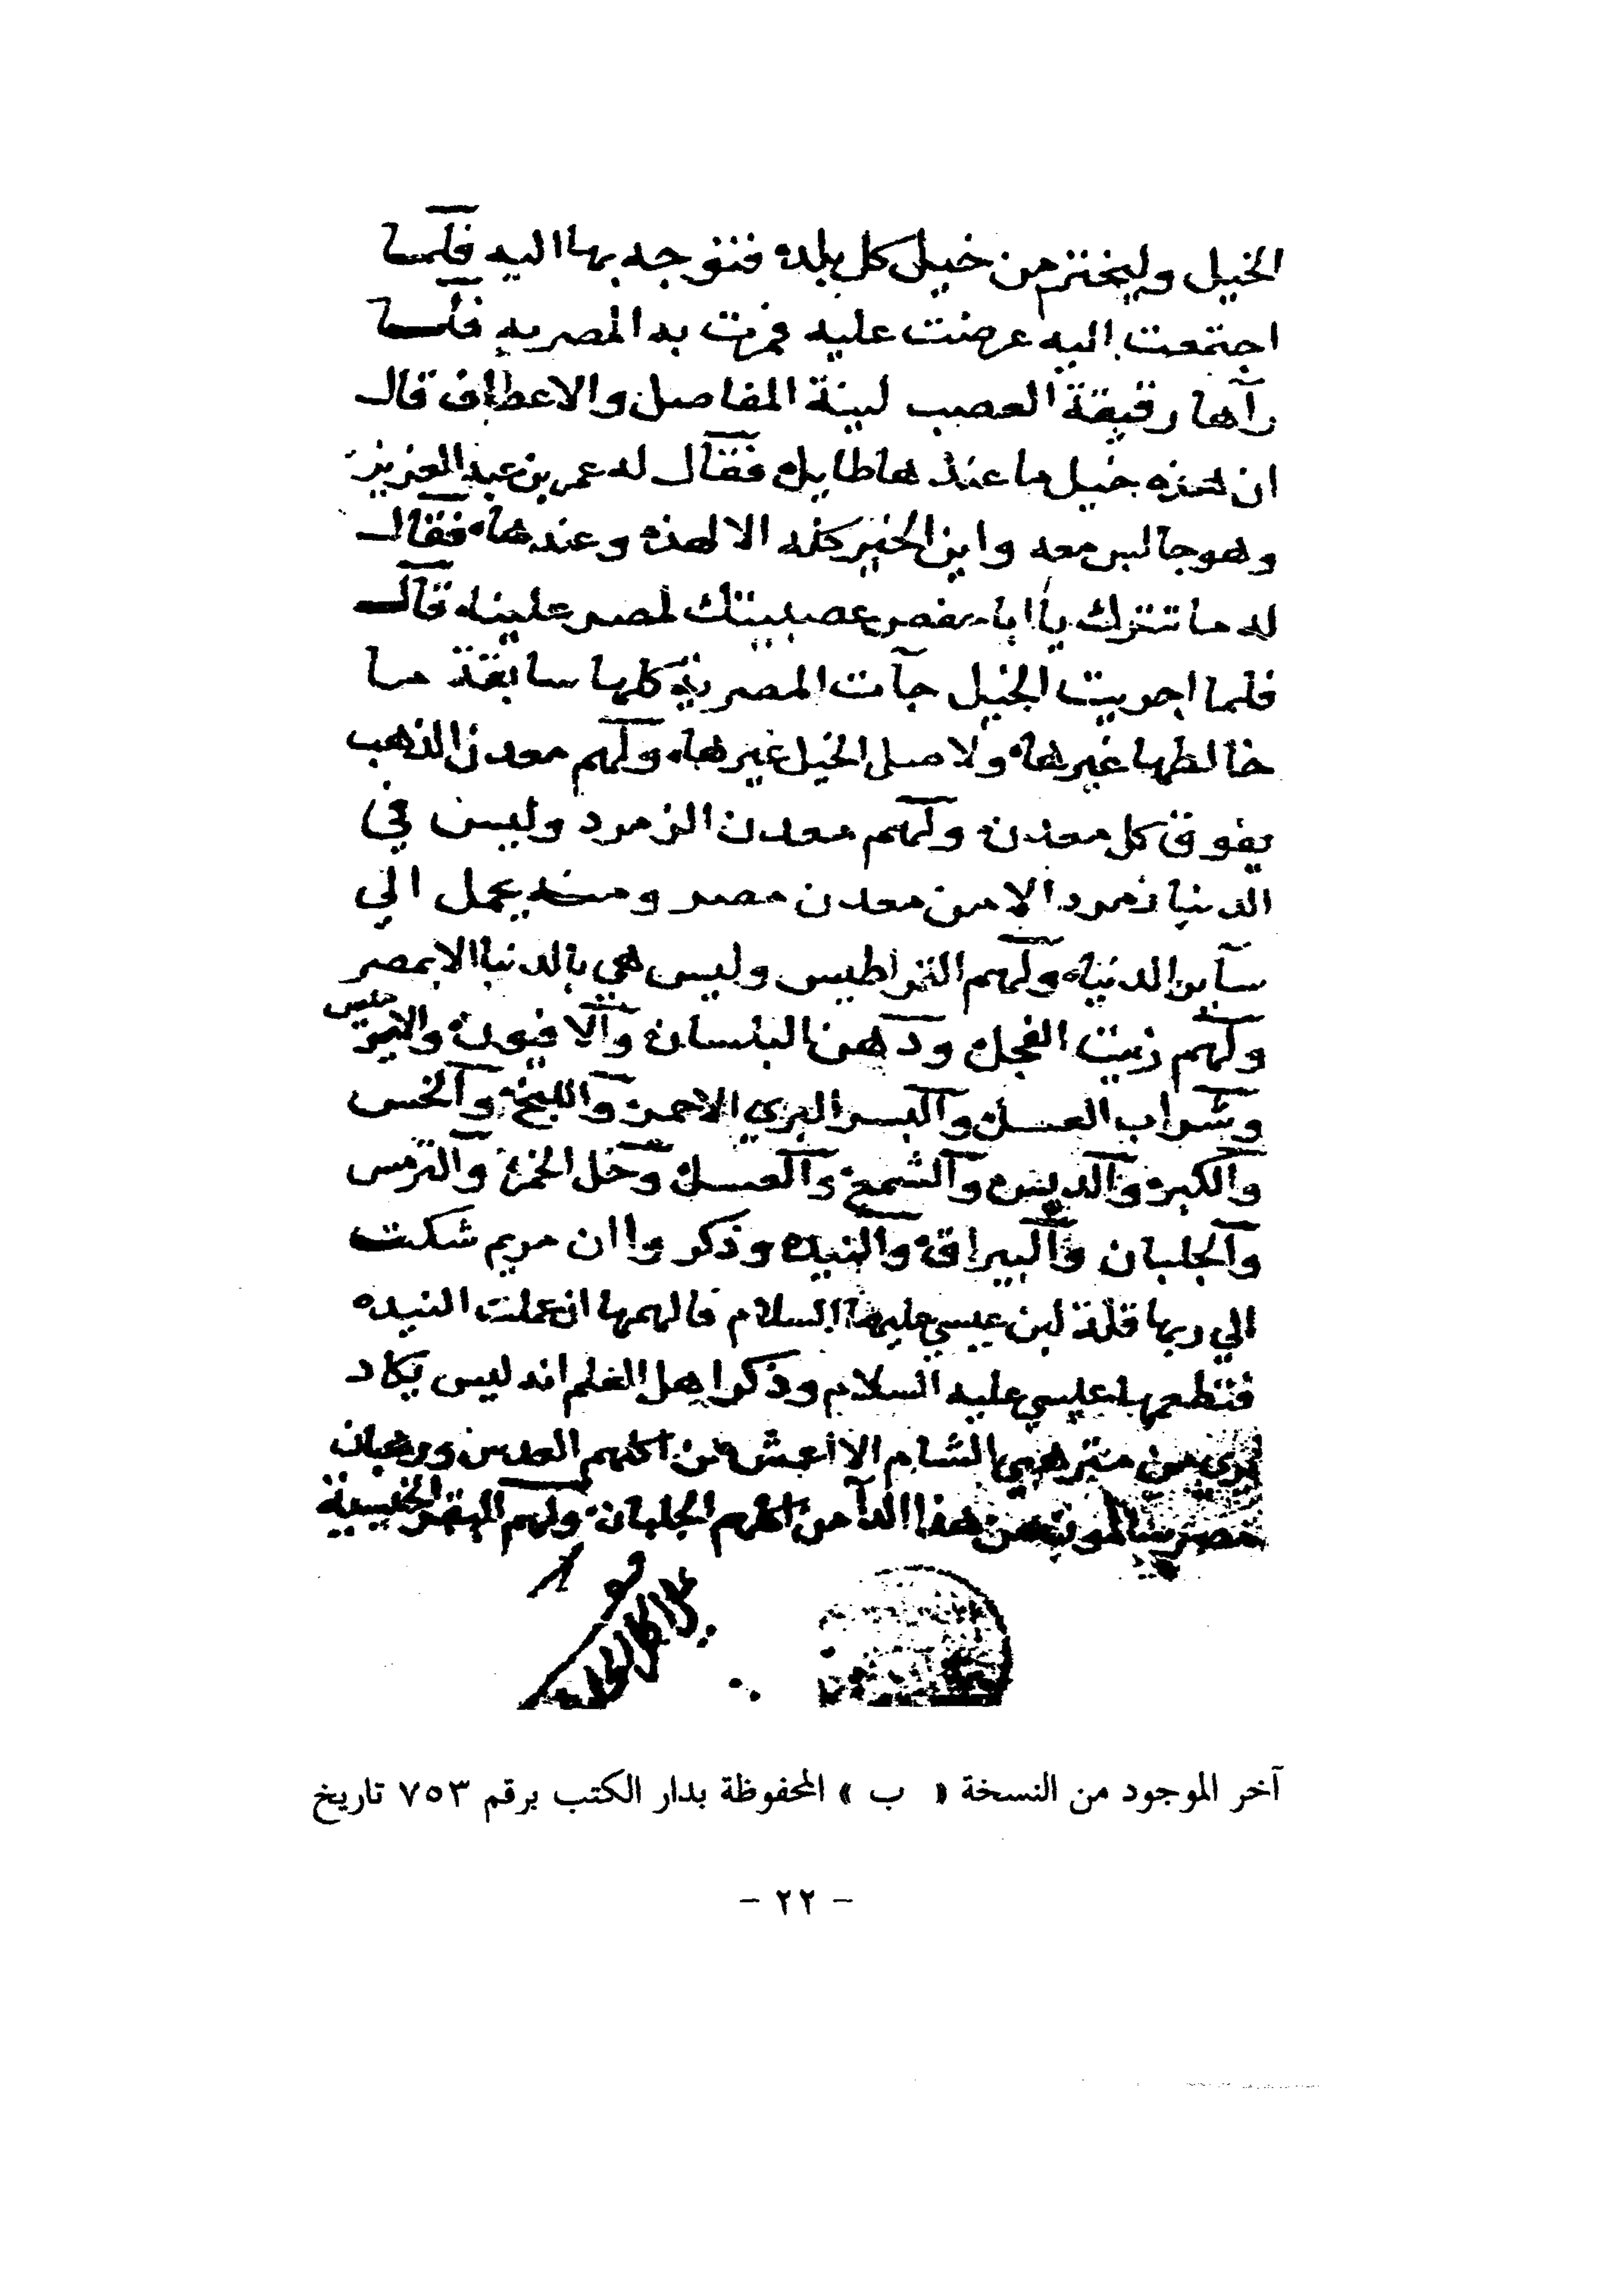 الخيل وليختر من خيل كل بلده فتوجه بها اليه فلما
اجتمعت اليه عرضت عليه فمرت به المصريه فلما
رآها رقيقة العصب لينة المفاصل والاعطاف قال
ان هذه خيل ما عند ها طايل فقال له عمر بن عبد العزيز
وهو جالس معه واين الخير كله الا لهذه وعندها فقال
له ما تترك يا ابا حفص عصبيتك لمصر علينا قال
فلما اجريت الخيل جآت المصرية كلها سابقة ما
خالطها غيرها ولا صلى الخيل غيرها ولهم معدن الذهب
يفوق كل معدن ولهم معدن الزمرد وليس في
الدنيا زمرد الا من معدن مصر ومنه يحمل الي
سآير الدنيا ولهم القراطيس وليس هي بالدنيا الا بمصر
ولهم زيت الفجل ودهن البلسان والافيون والابرميس
وشراب العسل والبسر البري الاحمر واللبخ والخس
والكبريت والشمع والعسل وخل الخمر والترمس
والجلبان والنيده وذكر وا ان مريم شكت
الي ربها قلة لبن عيسي عليهما السلام فالهمها ان عملت النيده
فتطعمها عليسي عليه السلام وذكر اهل العلم انه ليس يكاد
يرى من مترهبي الشام الا اعمش من اكلهم العدس ورهبان
مصر سالمون من هذا الدآ من اكلهم الجلبان ولهم البقر الخيسية
آخر الموجود من النسخة « ب » المحفوظة بدار الكتب برقم ٧٥٣ تاريخ
- ٢٢ -